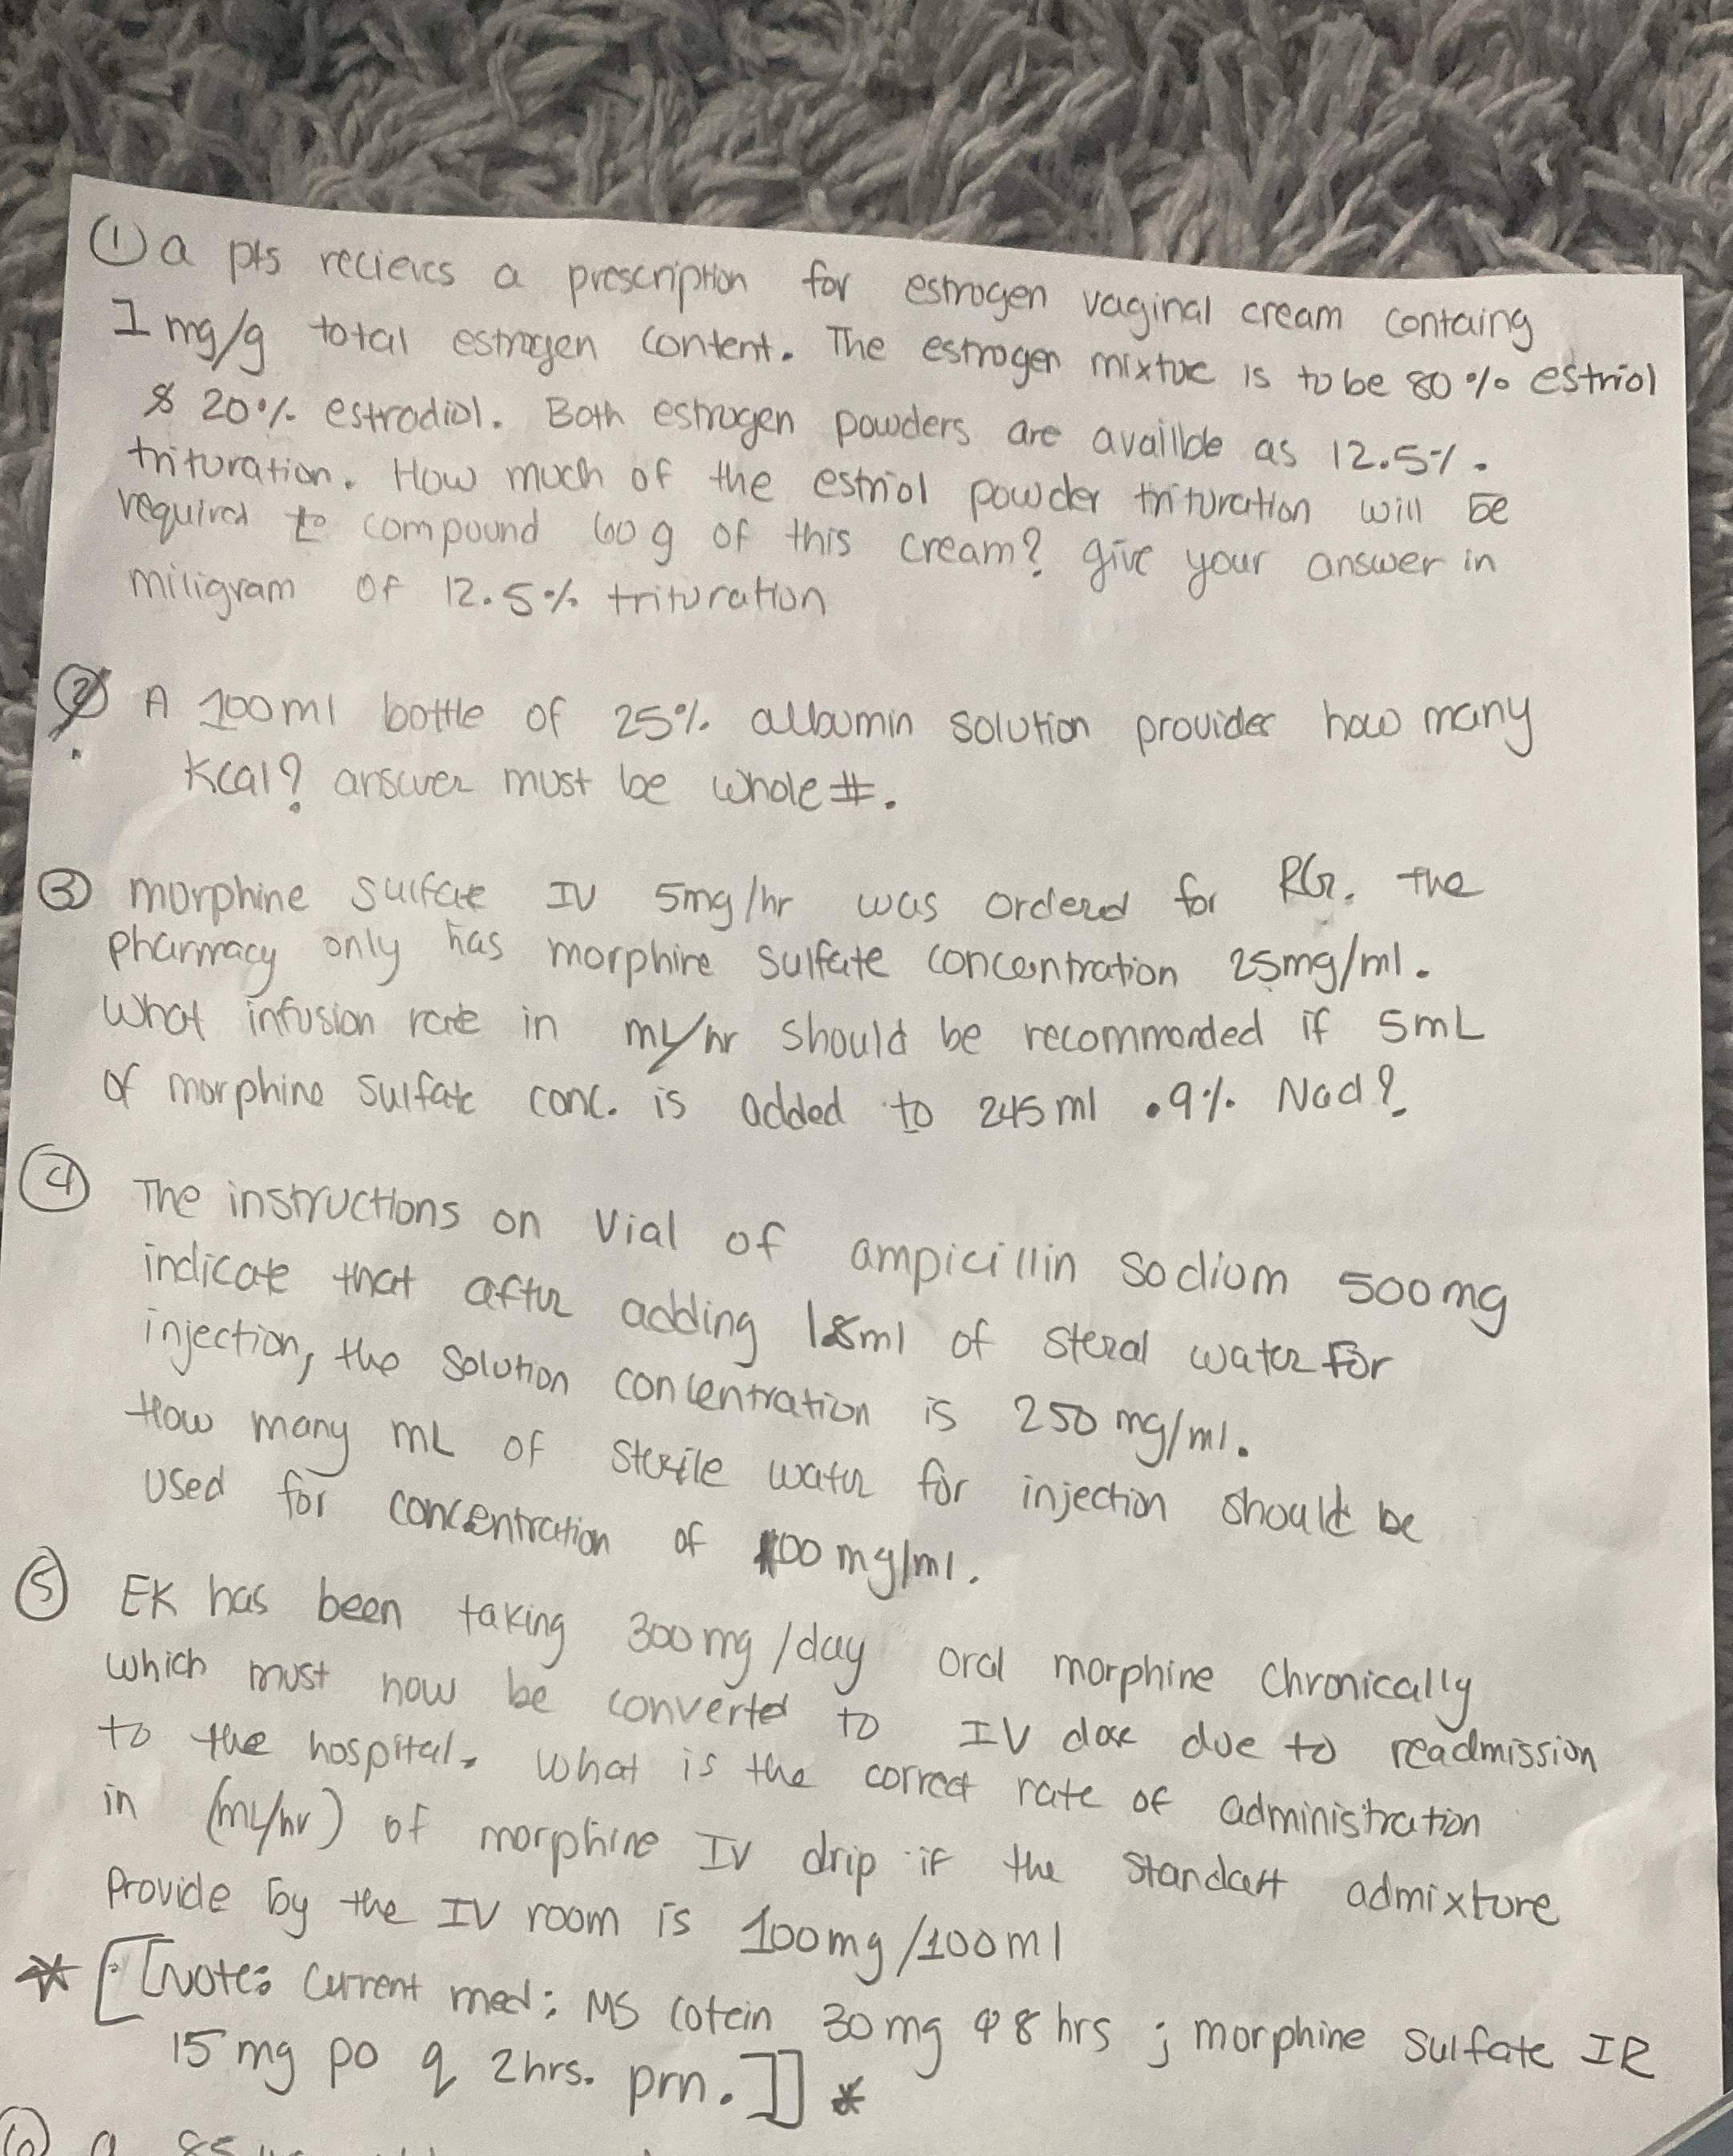 ① a pts recieves a prescription for estrogen vaginal cream containg
1 mg/g total estrogen content. The estrogen mixture is to be 80% estriol
& 20% estradiol. Both estrogen powders are availlbe as 12.5%.
trituration. How much of the estriol powder trituration will be
required to compound 60 g of this cream? give your answer in
miligram of 12.5% trituration
② A 100ml bottle of 25% albumin solution provides how many
Kcal? answer must be whole #.
③ morphine sulfate IV 5mg/hr was ordered for RG. the
pharmacy only has morphine sulfate concentration 25mg/ml.
What infusion rate in mL/hr should be recommended if 5mL
of morphine sulfate conc. is added to 245ml .9% Nacl?
④ The instructions on vial of ampicillin sodium 500mg
indicate that after adding 1.8ml of steral water for
injection, the solution concentration is 250 mg/ml.
How many mL of sterile water for injection should be
used for concentration of 100 mg/ml.
⑤ EK has been taking 300mg/day oral morphine chronically
which must now be converted to IV dose due to readmission
to the hospital. What is the correct rate of administration
in (mL/hr) of morphine IV drip if the standart admixture
provide by the IV room is 100mg/100ml
* [[Note: Current med: MS cotein 30mg q 8 hrs ; morphine sulfate IR
15mg po q 2hrs. prn.]] *
⑥ a 85